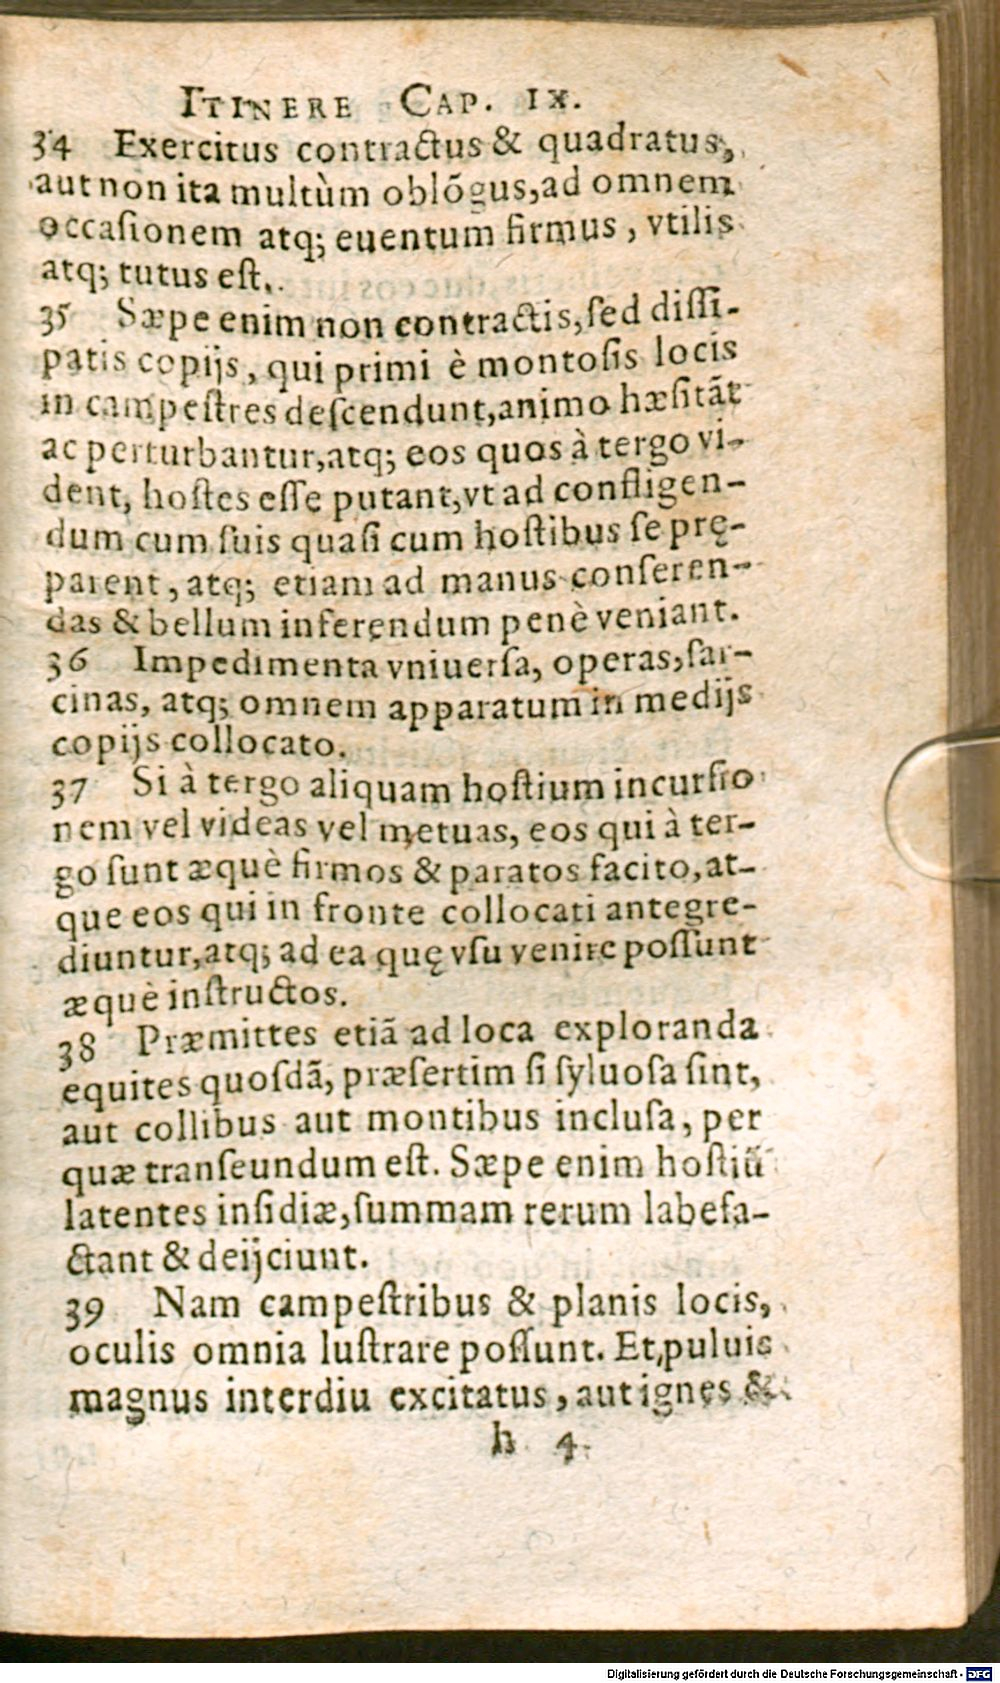 ITINERE CAP. IX.
34 Exercitus contractus & quadratus,
aut non ita multùm oblõgus, ad omnem
occaſionem atq; euentum firmus, vtilis
atq; tutus eſt.
35 Sæpe enim non contractis, ſed diſſi-
patis copijs, qui primi è montoſis locis
in campeſtres deſcendunt, animo hæſitãt
ac perturbantur, atq; eos quos à tergo vi-
dent, hoſtes eſſe putant, vt ad confligen-
dum cum ſuis quaſi cum hoſtibus ſe prę-
parent, atq; etiam ad manus conſeren-
das & bellum inferendum penè veniant.
36 Impedimenta vniuerſa, operas, ſar-
cinas, atq; omnem apparatum in medijs
copijs collocato.
37 Si à tergo aliquam hoſtium incurſio
nem vel videas vel metuas, eos qui à ter-
go ſunt æquè firmos & paratos facito, at-
que eos qui in fronte collocati antegre-
diuntur, atq; ad ea quę vſu venire poſſunt
æquè inſtructos.
38 Præmittes etiã ad loca exploranda
equites quoſdã, præſertim ſi ſyluoſa ſint,
aut collibus aut montibus incluſa, per
quæ tranſeundum eſt. Sæpe enim hoſtiũ
latentes inſidiæ, ſummam rerum labefa-
ctant & deijciunt.
39 Nam campeſtribus & planis locis,
oculis omnia luſtrare poſſunt. Et, puluis
magnus interdiu excitatus, aut ignes &
h 4
Digitalisierung gefördert durch die Deutsche Forschungsgemeinschaft - DFG